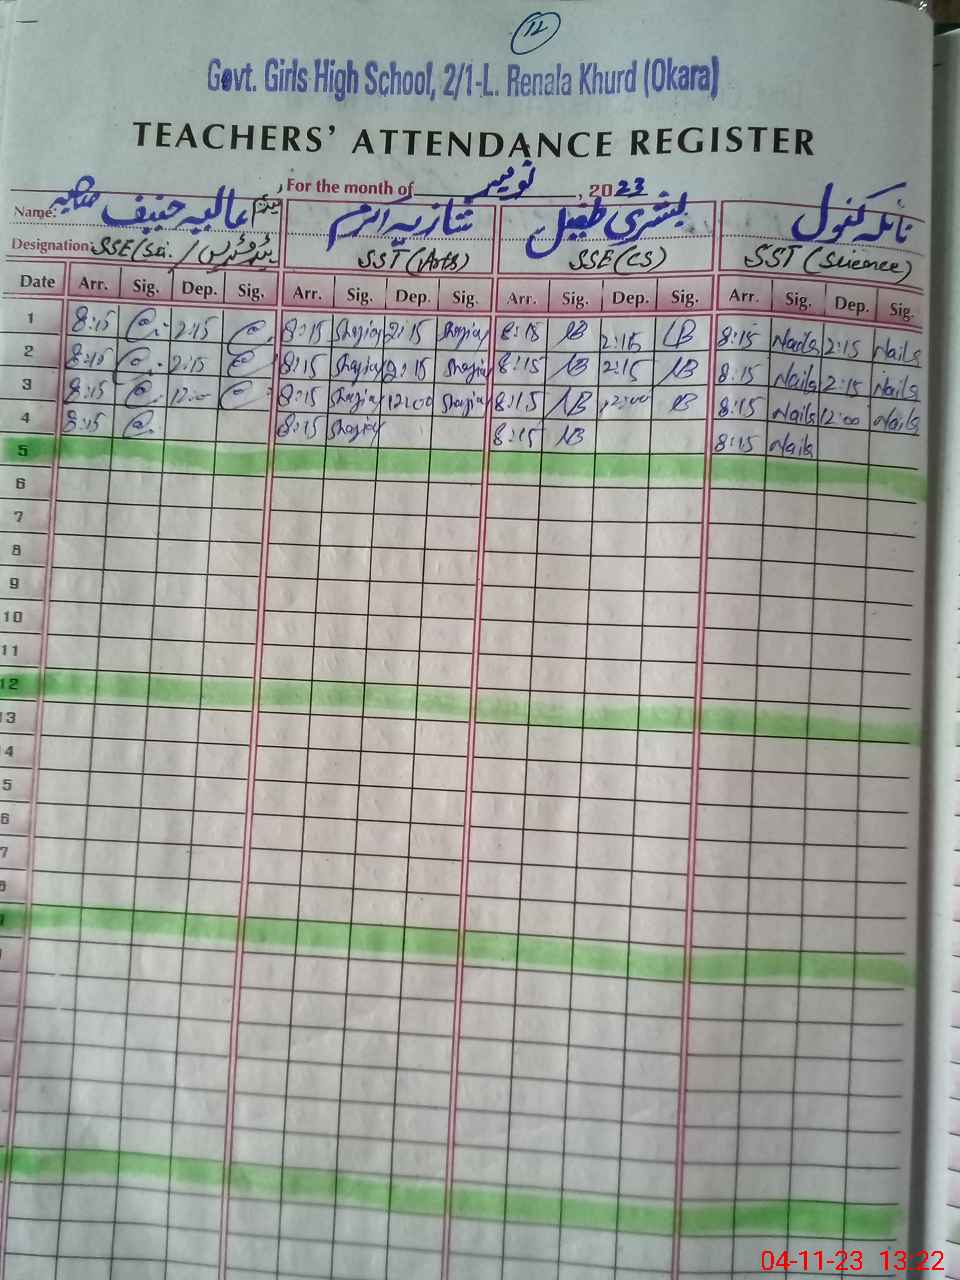 12
Govt. Girls High School, 2/1-L. Renala Khurd (Okara)
TEACHERS' ATTENDANCE REGISTER
, For the month of نومبر , 2023
Name: میڈم عالیہ حنیف صاحبہ شازیہ اکرم بشریٰ طفیل نائلہ کنول
Designation: SSE/Sci. / ہیڈمسٹریس SST (Arts) SSE (CS) SST (Science)
Date Arr. Sig. Dep. Sig. Arr. Sig. Dep. Sig. Arr. Sig. Dep. Sig. Arr. Sig. Dep. Sig.
1 8:15 2:15 8:15 Shazia 2:15 Shazia 8:15 2:15 8:15 Naila 2:15 Naila
2 8:15 2:15 8:15 Shazia 2:15 Shazia 8:15 2:15 8:15 Naila 2:15 Naila
3 8:15 12:00 8:15 Shazia 12:00 Shazia 8:15 12:00 8:15 Naila 12:00 Naila
4 8:15 8:15 Shazia 8:15 8:15 Naila
5
6
7
8
9
10
11
12
13
4
5
6
7
04-11-23 13:22